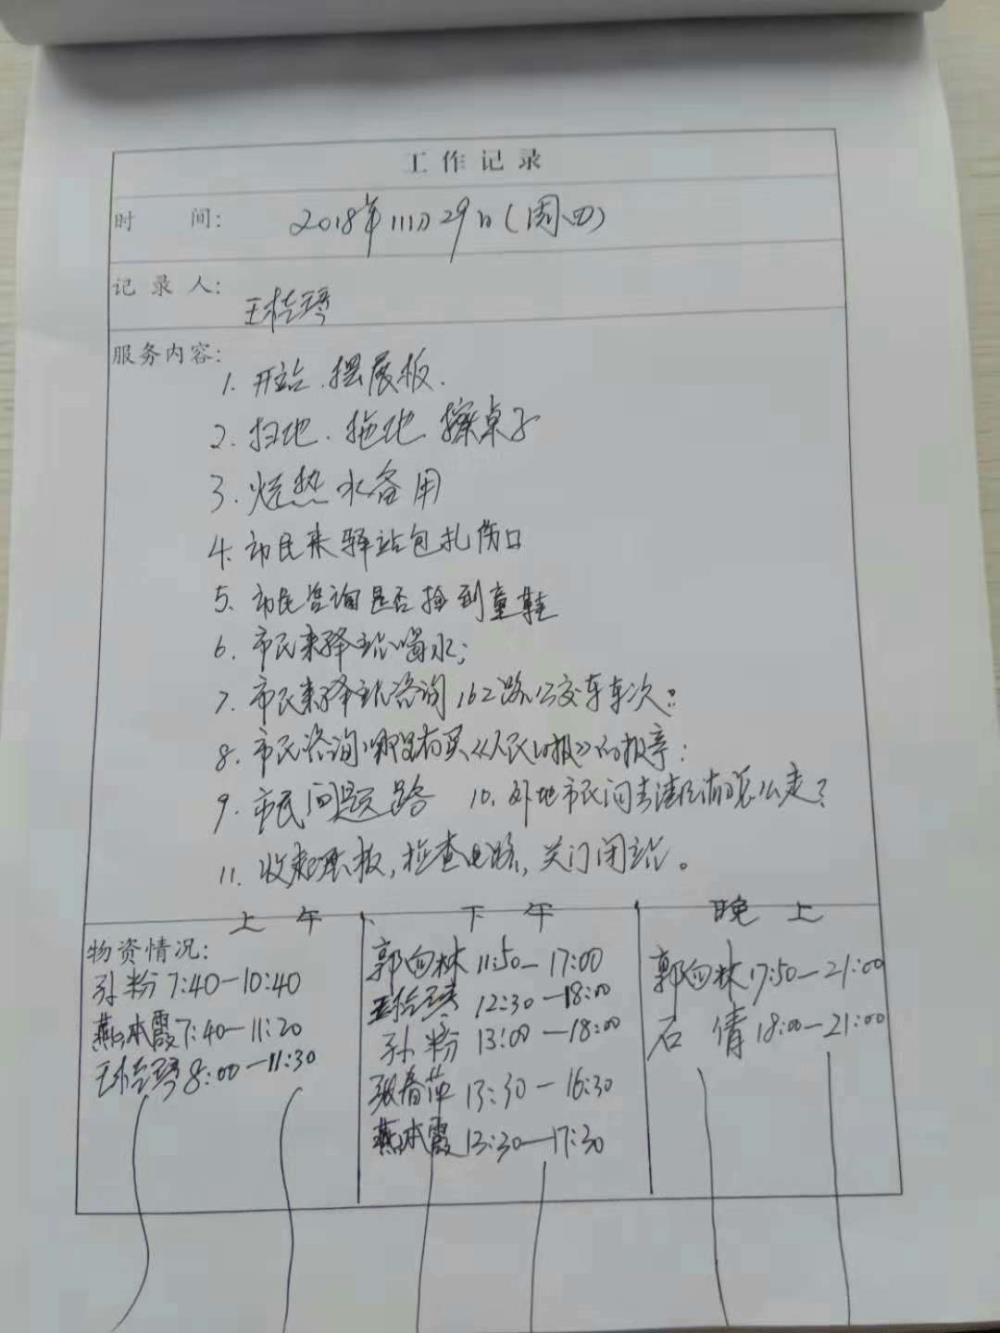 工作记录
时 间: 2018年11月29日(周四)
记录人: 王桂琴
服务内容:
1. 开站.摆展板.
2. 扫地.拖地 擦桌子
3. 烧热水备用
4. 市民来驿站包扎伤口
5. 市民咨询是否捡到童鞋
6. 市民来驿站喝水;
7. 市民来驿站咨询162路公交车车次:
8. 市民咨询哪里有买《人民日报》的报亭:
9. 市民问题路 10. 外地市民问去清怎么走?
11. 收起展板,检查电路,关门闭站。
上午 下午 晚上
物资情况:
孙粉 7:40—10:40
燕本霞 7:40—11:20
王桂琴 8:00—11:30
郭向林 11:50—17:00
王桂琴 12:30—18:00
孙粉 13:00—18:00
张春萍 13:30—16:30
燕本霞 13:30—17:30
郭向林 17:50—21:00
石倩 18:00—21:00